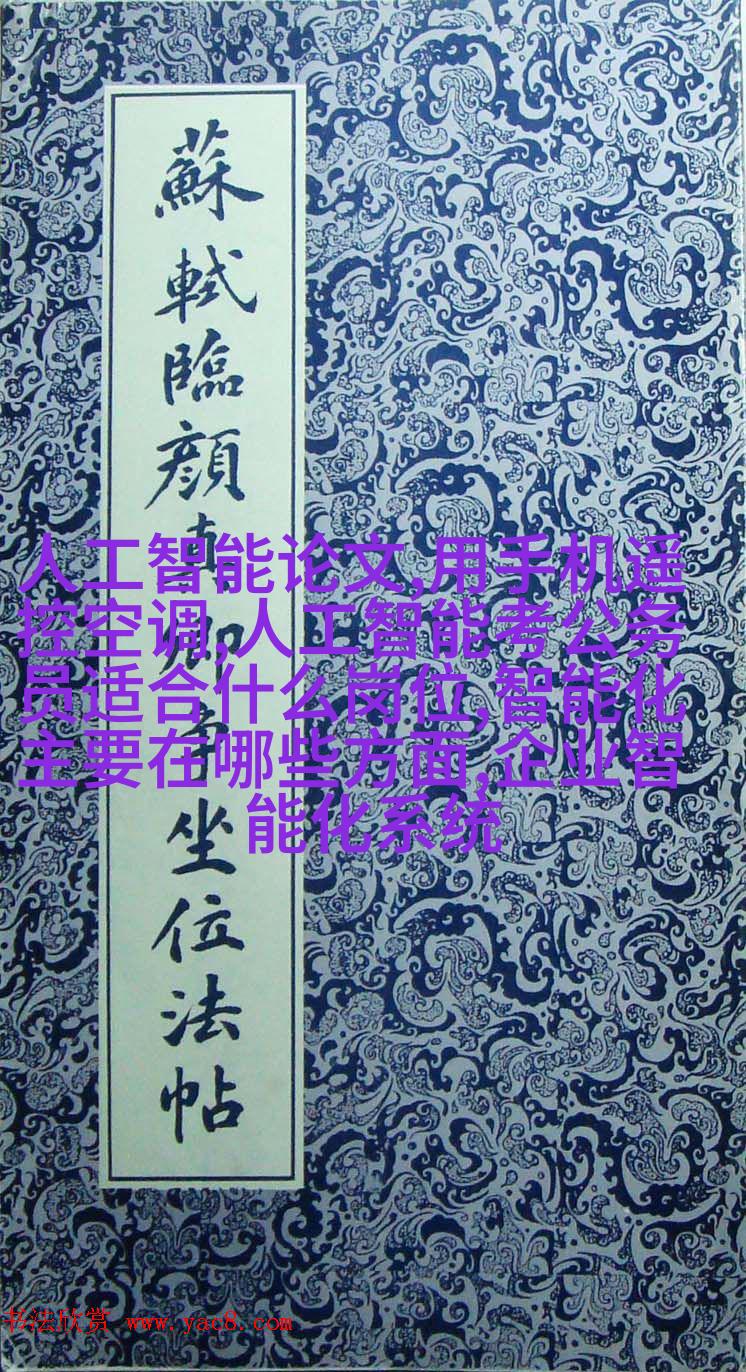 蘇軾臨顔真卿争坐位法帖
人工智能论文,用手机遥
控空调,人工智能考公务
员适合什么岗位,智能化
主要在哪些方面,企业智
能化系统
书法欣赏 www.yac8.com